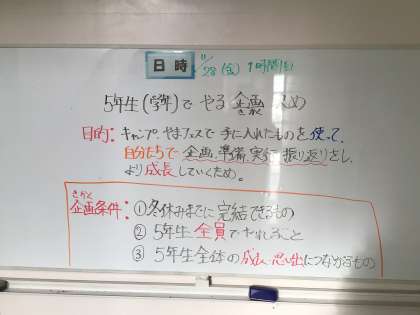 日時 11/28(金) 1時間目
5年生(学年)で やる 企画 きかく 決め
目的: キャンプ、やまフェスで 手に入れたものを 使って、
自分たちで 企画、準備、実行、振り返りをし、
より成長していくため。
きかく
企画条件: ①冬休みまでに完結できるもの
② 5年生 全員で やれること
③ 5年生全体の成長・思い出につながるもの